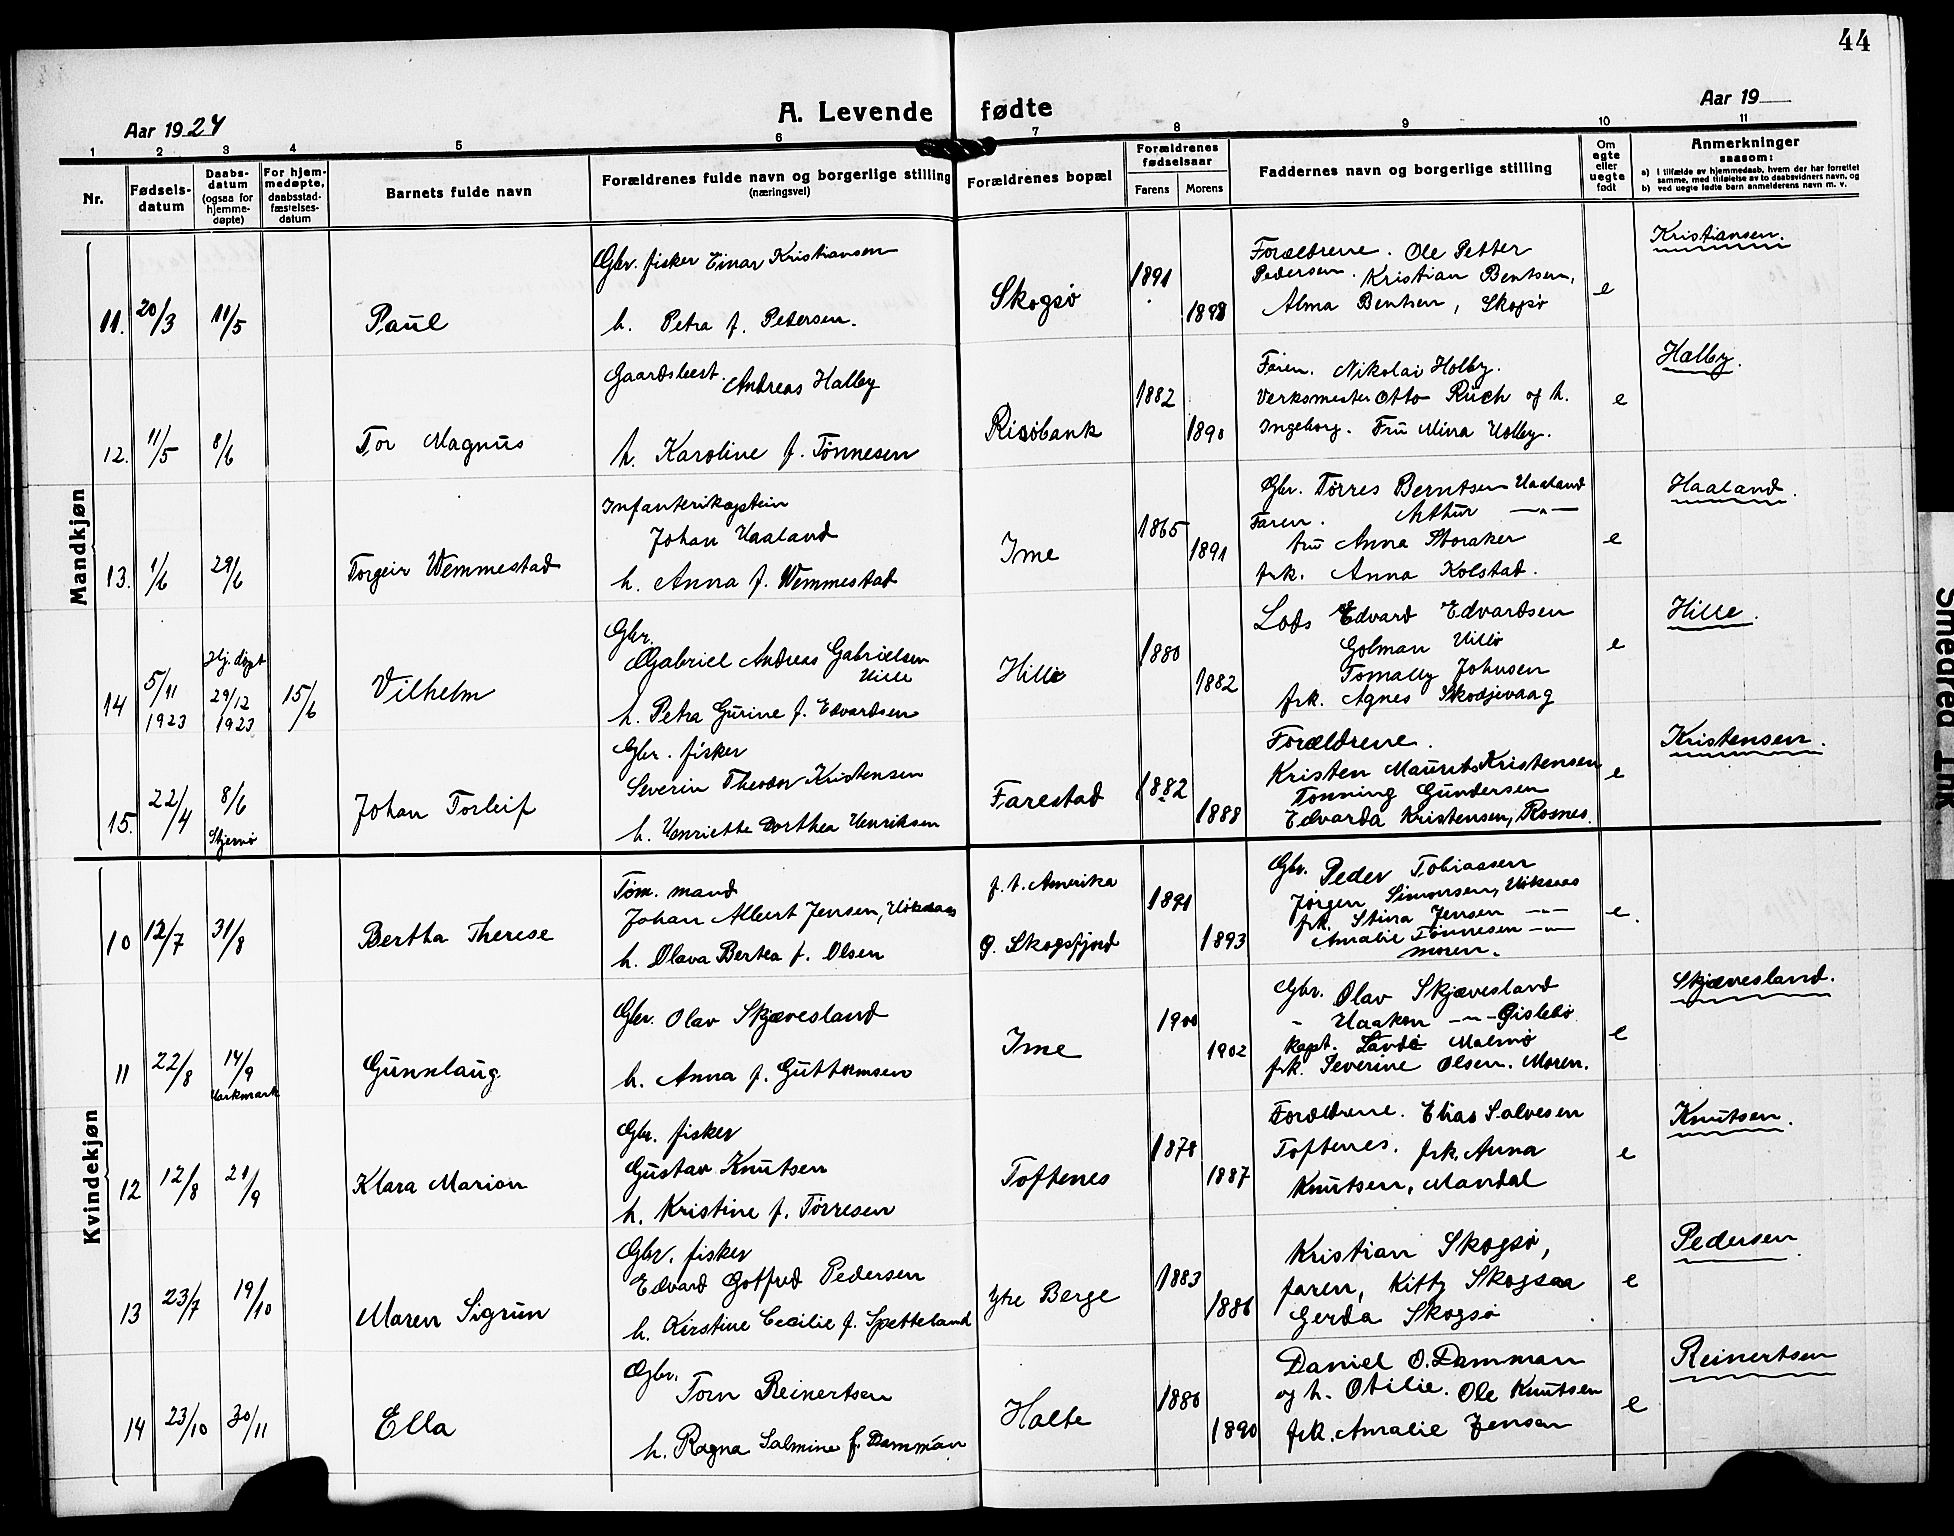 44
A. Levende fødte
Aar 1924
Aar 19
1 2 3 4 5 6 7 8 9 10 11
Nr.
Fødsels-
datum
Daabs-
datum
(ogsaa for
hjemme-
døpte)
For hjem-
medøpte,
daabsstad-
fæstelses-
datum
Barnets fulde navn
Forældrenes fulde navn og borgerlige stilling
(næringsvei)
Forældrenes bopæl
Forældrenes
fødselsaar
Farens
Morens
Faddernes navn og borgerlige stilling
Om
egte
eller
uegte
født
Anmerkninger
saasom:
a) I tilfælde av hjemmedaab, hvem der har forrettet
samme, med tilføielse av to daabsvidners navn, og
b) ved uegte fødte barn anmelderens navn m. v.
Mandkjøn
11. 20/3 11/5 Paul
Gbr. fisker Einar Kristiansen
h. Petra f. Petersen.
Skogsø
1891
1898
Forældrene. Ole Petter
Pedersen. Kristian Bentsen,
Alma Bentsen, Skogsø
e
Kristiansen.
12. 11/5 8/6 Tor Magnus
Gaardsbest. Andreas Halby
h. Karoline f. Tönnesen
Risøbank
1882
1890
Faren. Nikolai Holby.
Verksmester Otto Ruch og h.
Ingeborg. Fru Mina Holby.
e
Halby.
13. 1/6 29/6 Torgeir Wemmestad
Infanterikaptein
Johan Haaland
h. Anna f. Wemmestad
Ime
1865
1891
Gbr. Tørres Berntsen Haaland
Faren. Arthur —"—
fru Anna Storaker
frk. Anna Kolstad.
e
Haaland.
14 5/11 1923
Hj. døpt 29/12 1923
15/6
Vilhelm
Gbr.
Gabriel Andreas Gabrielsen
Hille
h. Petra Gurine f. Edvardsen
Hille
1880
1882
Lods Edvard Edvardsen
Golman Hille
Tomally Johnsen
frk. Agnes Skodjevaag
e
Hille.
15. 22/4 8/6
Skjernø
Johan Torleif
Gbr. fisker
Severin Theodor Kristensen
h. Henriette Dorthea Henriksen
Farestad
1882
1888
Forældrene.
Kristen Maurits Kristensen
Tonning Gundersen
Edvarda Kristensen, Rosnes.
e
Kristensen.
Kvindekjøn
10 12/7 31/8 Bertha Therese
Tøm. mand
Johan Albert Jensen, Ukseaas
h. Olava Bertea f. Olsen
f. t. Amerika
Ø. Skogsfjord
1891
1893
Gbr. Peder Tobiassen
Jørgen Simonsen,
frk. Stina Jensen —"—
Amalie Tønnesen —"—
moren.
e.
11 22/8 14/9
Harkmark
Gunnlaug
Gbr. Olav Skjævesland
h. Anna f. Guttormsen
Ime
1900
1902
Gbr. Olav Skjævesland
" Haakon —"— Gislebø
Kapt. Lande Malmø
frk. Severine Olsen. Moren.
e
Skjævesland.
12 12/8 21/9 Klara Marion
Gbr. fisker
Gustav Knutsen
h. Kristine f. Tørresen
Toftenes
1878
1887
Forældrene. Elias Salvesen
Toftenes. frk. Anna
Knutsen, Mandal
e
Knutsen.
13 23/7 19/10 Maren Sigrun
Gbr. fisker
Edvard Gotfred Pedersen
h. Kirstine Cecilie f. Spetteland
Ytre Berge
1883
1886
Kristian Skogsø,
faren, Kitty Skogsaa
Gerda Skogsø
e
Pedersen.
14 23/10 30/11 Ella
Gbr.
Torn Reinertsen
h. Ragna Salmine f. Damman
Halte
1886
1890
Daniel O. Damman
og h. Otilie. Ole Knutsen
frk. Amalie Jensen
e
Reinertsen
Smedred Ink.